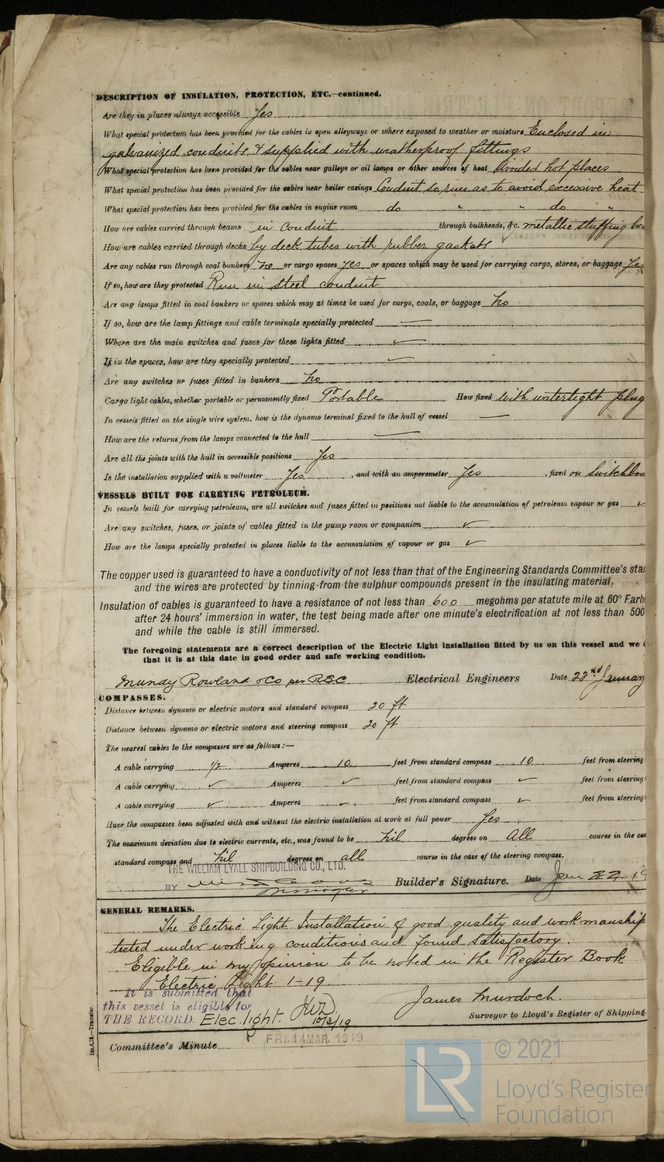 DESCRIPTION OF INSULATION, PROTECTION, ETC.—continued.
Are they in places always accessible Yes
What special protection has been provided for the cables in open alleyways or where exposed to weather or moisture Enclosed in
galvanized conduits & supplied with weatherproof fittings
What special protection has been provided for the cables near galleys or oil lamps or other sources of heat Avoided hot places
What special protection has been provided for the cables near boiler casings Conduit so run as to avoid excessive heat
What special protection has been provided for the cables in engine room do " do "
How are cables carried through beams in conduit through bulkheads, &c. metallic stuffing box
How are cables carried through decks by deck tubes with rubber gaskets
Are any cables run through coal bunkers No or cargo spaces Yes or spaces which may be used for carrying cargo, stores, or baggage Yes
If so, how are they protected Run in steel conduit
Are any lamps fitted in coal bunkers or spaces which may at times be used for cargo, coals, or baggage No
If so, how are the lamp fittings and cable terminals specially protected
Where are the main switches and fuses for these lights fitted
If in the spaces, how are they specially protected
Are any switches or fuses fitted in bunkers No
Cargo light cables, whether portable or permanently fixed Portable How fixed With watertight plug
In vessels fitted on the single wire system, how is the dynamo terminal fixed to the hull of vessel —
How are the returns from the lamps connected to the hull —
Are all the joints with the hull in accessible positions Yes
Is the installation supplied with a voltmeter Yes, and with an amperemeter Yes, fixed on Switchboa
VESSELS BUILT FOR CARRYING PETROLEUM.
In vessels built for carrying petroleum, are all switches and fuses fitted in positions not liable to the accumulation of petroleum vapour or gas ✓
Are any switches, fuses, or joints of cables fitted in the pump room or companion ✓
How are the lamps specially protected in places liable to the accumulation of vapour or gas ✓
The copper used is guaranteed to have a conductivity of not less than that of the Engineering Standards Committee's sta
and the wires are protected by tinning from the sulphur compounds present in the insulating material.
Insulation of cables is guaranteed to have a resistance of not less than 600 megohms per statute mile at 60° Fah
after 24 hours' immersion in water, the test being made after one minute's electrification at not less than 500
and while the cable is still immersed.
The foregoing statements are a correct description of the Electric Light installation fitted by us on this vessel and we
that it is at this date in good order and safe working condition.
Mundy Rowland & Co per R.S.C. Electrical Engineers Date 22nd January
COMPASSES.
Distance between dynamo or electric motors and standard compass 20 ft
Distance between dynamo or electric motors and steering compass 20 ft
The nearest cables to the compasses are as follows:—
A cable carrying 1/2 Amperes 10 feet from standard compass 10 feet from steering
A cable carrying ✓ Amperes ✓ feet from standard compass ✓ feet from steering
A cable carrying ✓ Amperes ✓ feet from standard compass ✓ feet from steering
Have the compasses been adjusted with and without the electric installation at work at full power Yes
The maximum deviation due to electric currents, etc., was found to be Nil degrees on All course in the cas
standard compass and Nil degrees on all course in the case of the steering compass.
THE WILLIAM LYALL SHIPBUILDING CO., LTD.
BY Builder's Signature. Date Jan 22-19
GENERAL REMARKS.
The Electric Light Installation of good quality and workmanship
tested under working conditions and found satisfactory.
Eligible in my opinion to be noted in the Register Book
Electric Light 1-19
It is submitted that
this vessel is eligible for
THE RECORD. Elec. light. 10/3/19
James Murdoch.
Surveyor to Lloyd's Register of Shipping
Committee's Minute FRI. 14 MAR. 1919
© 2021
LR
Lloyd's Register
Foundation